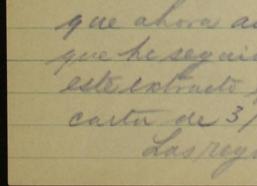 que ahora a
que he segui
este extracto
carta de 3/
Las reg